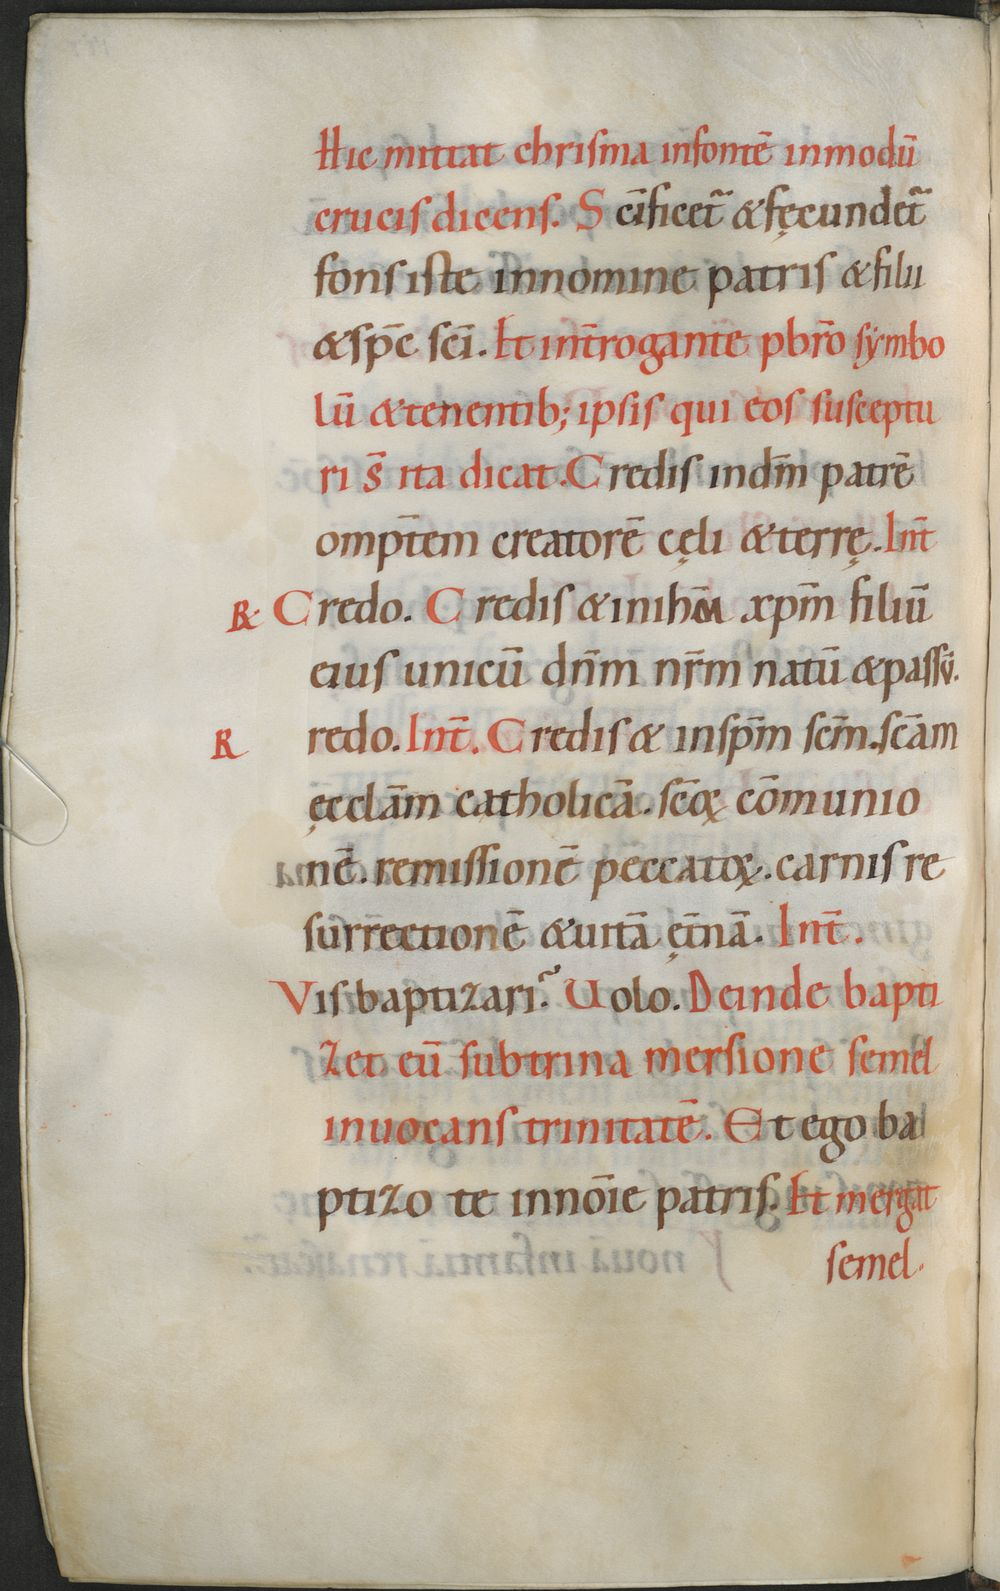 Hic mittat chrisma infontē inmodū
crucis dicens. Scīficet᷑ & fęcundet᷑
fons iste innomine patris & filii
& sp̄c sc̄i. Et int̄rogante pbr̄o symbo
lū & tenentib; ipsis qui eos susceptu
ri s̄ ita dicat. Credis indm̄ patrē
omp̄tem creatorē cęli & terrę. Int̄
R Credo. Credis & inihm̄ xpm̄ filiū
eius unicū dn̄m nr̄m natū & passū.
R redo. Int̄. Credis & insp̄m sc̄m. sc̄am
ęcclām catholicā. sc̄oꝝ cōmunio
nē. remissionē peccatoꝝ. carnis re
surrectionē & uitā ęt̄nā. Int̄.
Vis baptizari? Uolo. Deinde bapti
zet eū sub trina mersione semel
inuocans trinitatē. Et ego ba
ptizo te innōie patris. Et mergat
semel.